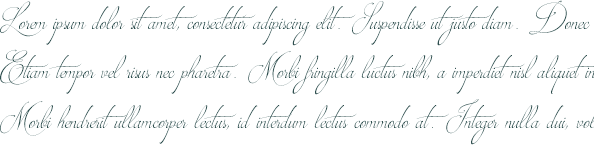 Lorem ipsum dolor sit amet, consectetur adipiscing elit. Suspendisse ut justo diam. Donec
Etiam tempor vel risus nec pharetra. Morbi fringilla luctus nibh, a imperdiet nisl aliquet in
Morbi hendrerit ullamcorper lectus, id interdum lectus commodo at. Integer nulla dui, vol